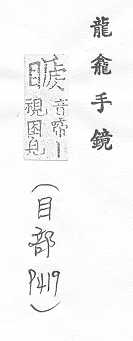 龍龕手鏡
音啼丨
視困皃
（目部P419）